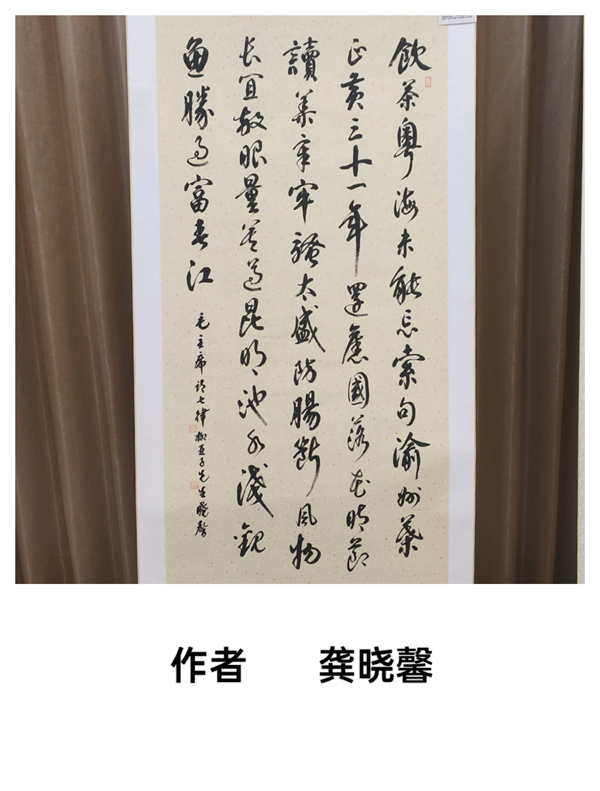 飲茶粵海未能忘索句渝州葉
正黄三十一年還舊國落花时節
讀華章牢騷太盛防腸斷風物
长宜放眼量莫道昆明池水淺觀
魚勝過富春江
毛主席诗七律柳亚子先生曉馨
作者 龚晓馨